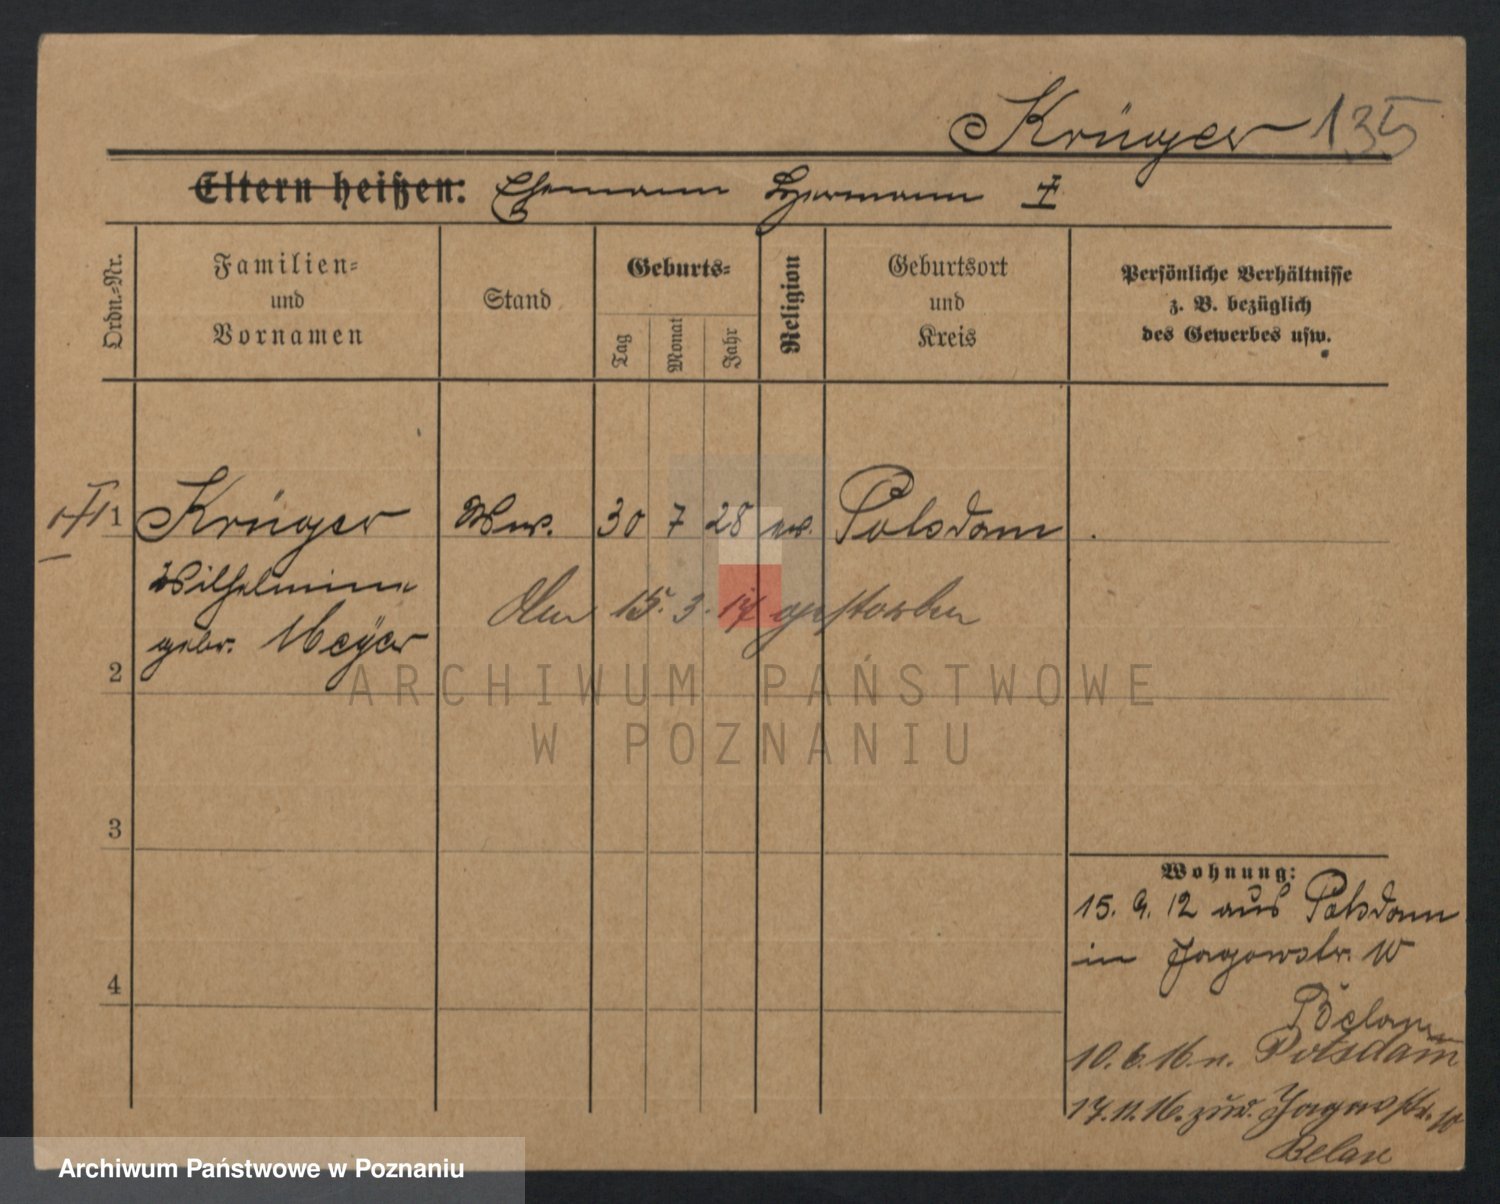 Krüger 135
Eltern heißen: Ehemann Hermann †
Ordn.-Nr.
Familien-
und
Vornamen
Stand
Geburts-
Tag
Monat
Jahr
Religion
Geburtsort
und
Kreis
Persönliche Verhältnisse
z. B. bezüglich
des Gewerbes usw.
1 Krüger Wwe. 30 7 28 ev. Potsdam
Wilhelmine
geb. Meÿer
den 15. 3. 17 gestorben
2
3
4
Wohnung:
15. 9. 12 aus Potsdam
in Jagowstr. 10
10. 6. 16. n. Potsdam
17. 11. 16. zur. Jagowstr. 10
ARCHIWUM PAŃSTWOWE
W POZNANIU
Archiwum Państwowe w Poznaniu